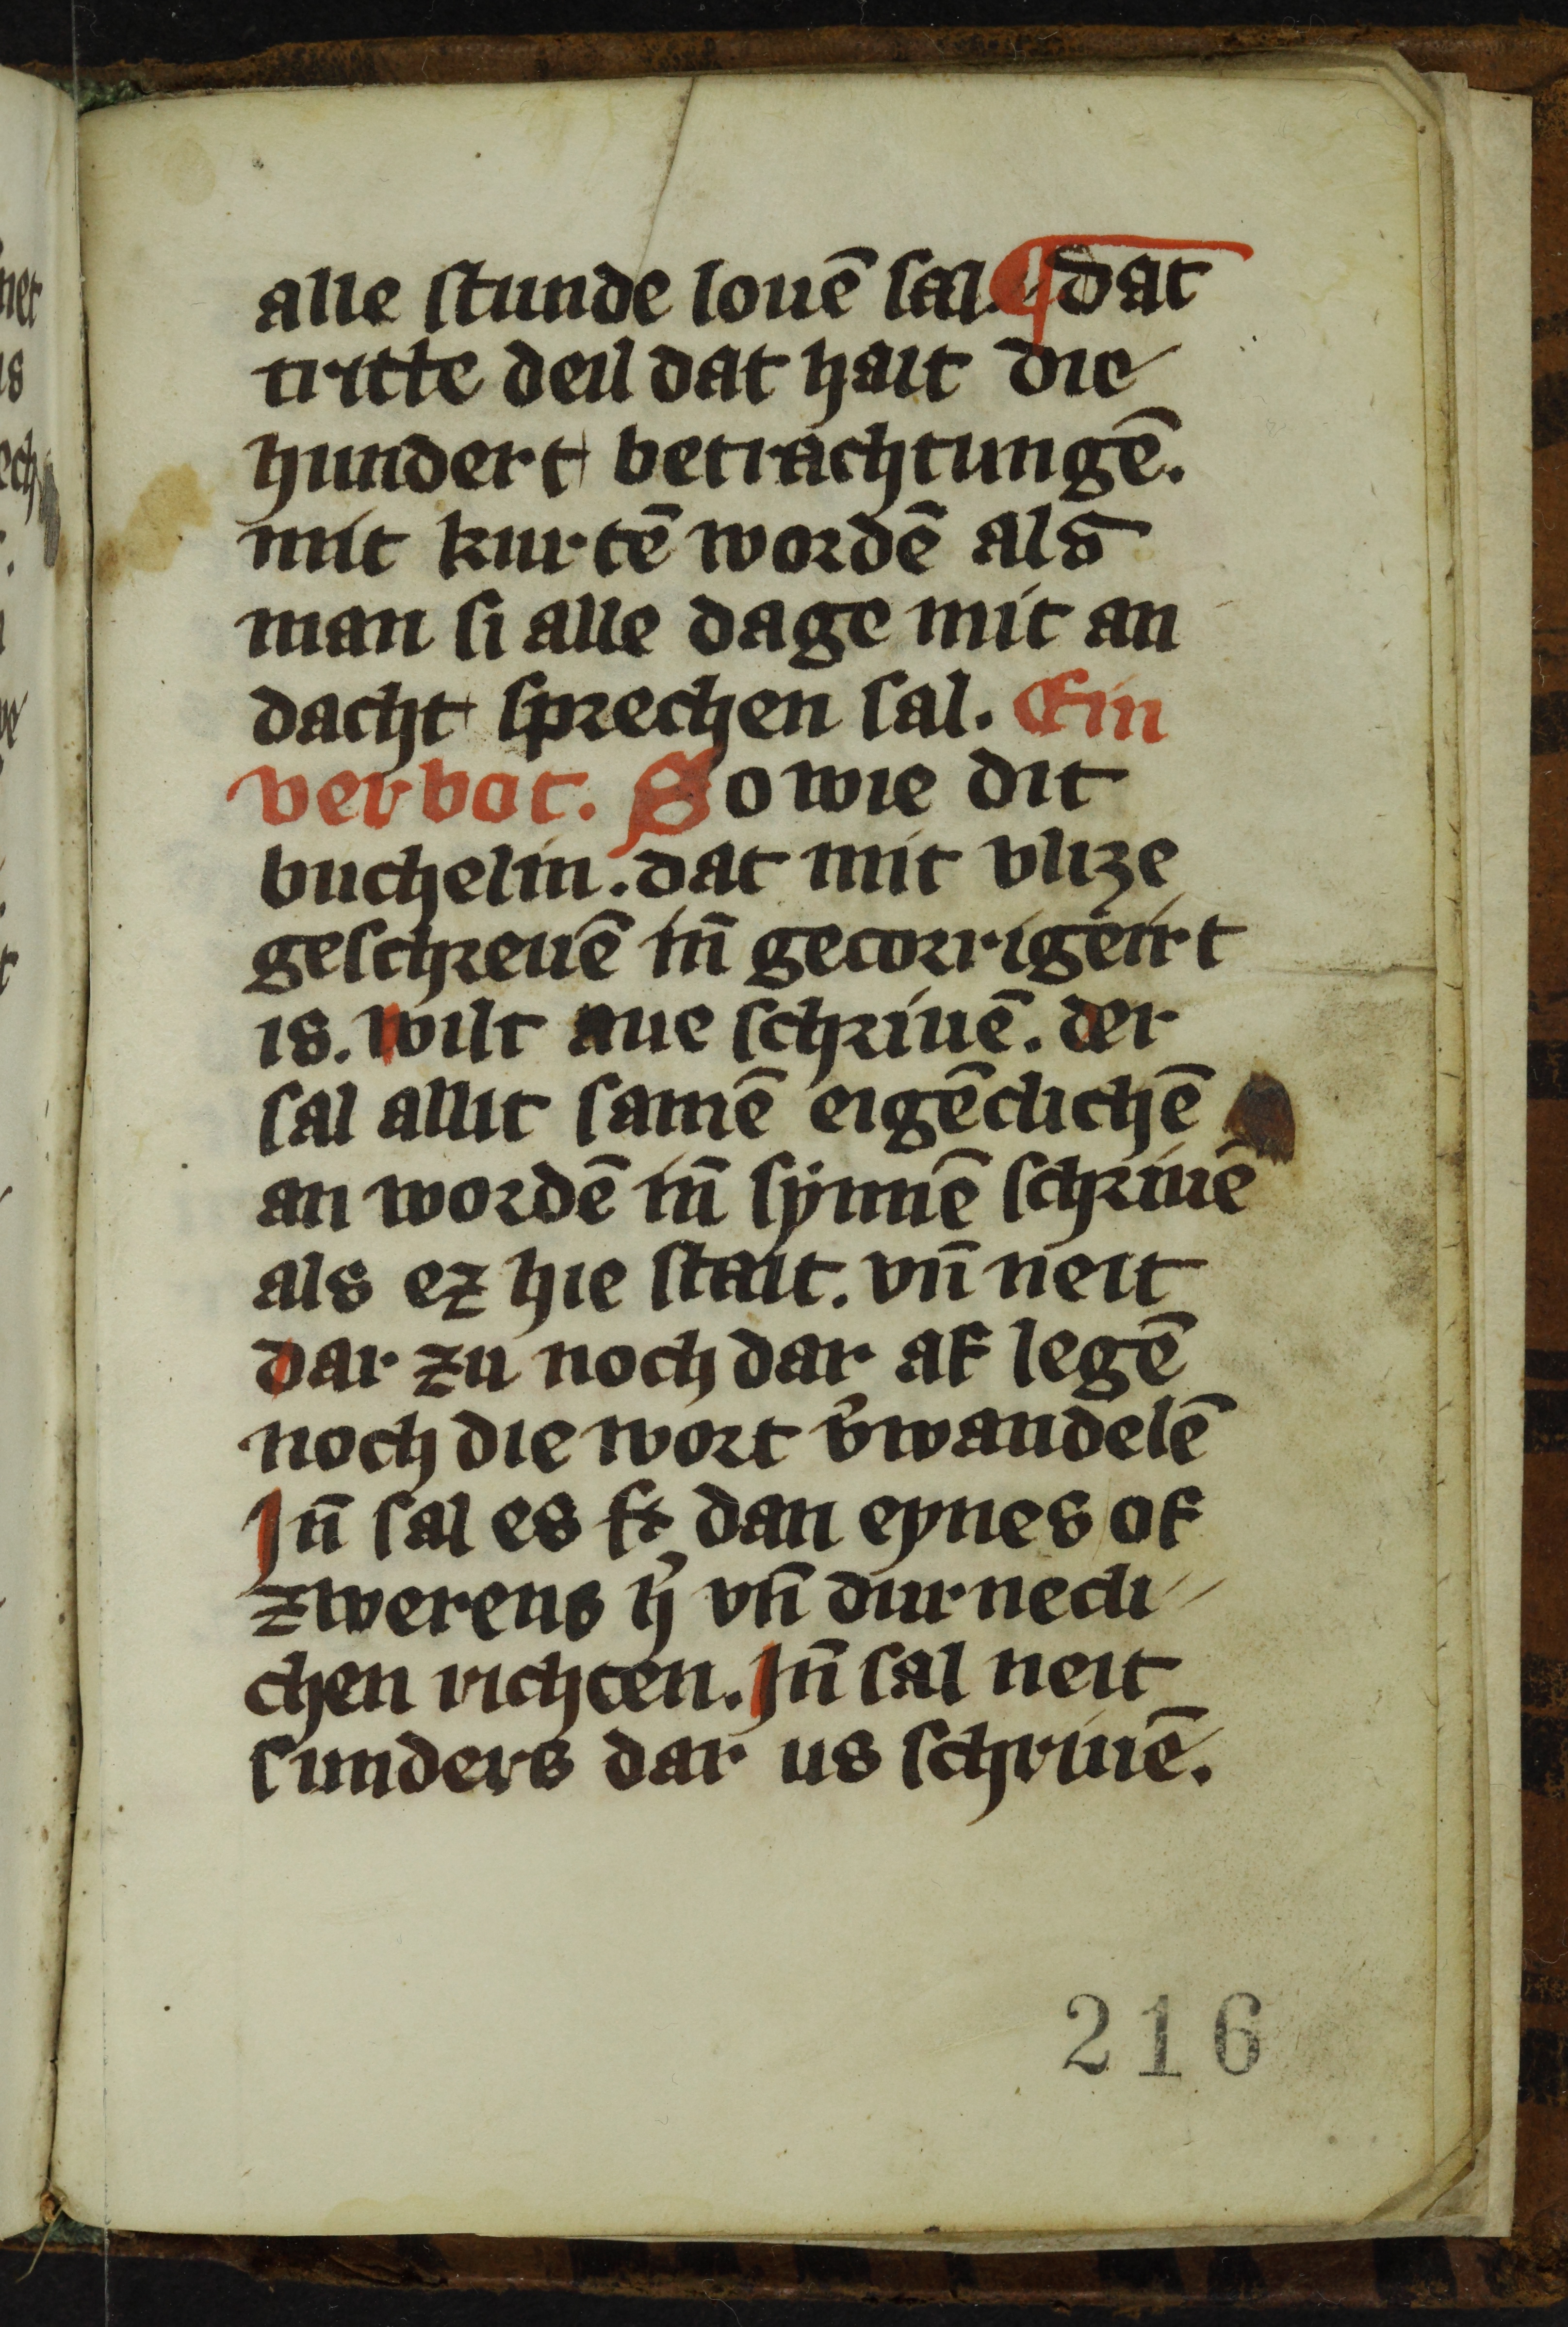 alle stunde louē sal. ¶ dat
tritte deil dat hait die
hundert betrachtungē.
mit kurtē wordē als
man si alle dage mit an
dacht sprechen sal. Ein
verbot. So wie dit
buchelin. dat mit vlize
geschreuē iñ gecorrigeirt
is. wilt aue schriuē. der
sal allit samē eigēclichē
an wordē iñ sÿnnē schriuē
als ez hie stait. vn̄ neit
dar zu noch dar af legē
noch die wort v̓wandelē
In̄ sal es dan eynes of
zwerens h̓ vn̄ durnecli
chen richten. In̄ sal neit
sunders dar us schriuē.
216